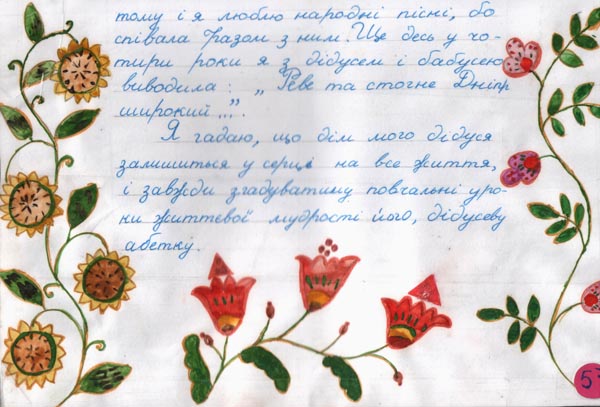 тому і я люблю народні пісні, бо
співала разом з ним. Ще десь у чо-
тири роки я з дідусем і бабусею
виводила: „Реве та стогне Дніпр
широкий...”.
Я гадаю, що дім мого дідуся
залишиться у серці на все життя,
і завжди згадуватиму повчальні уро-
ки життєвої мудрості його, дідусеву
абетку.